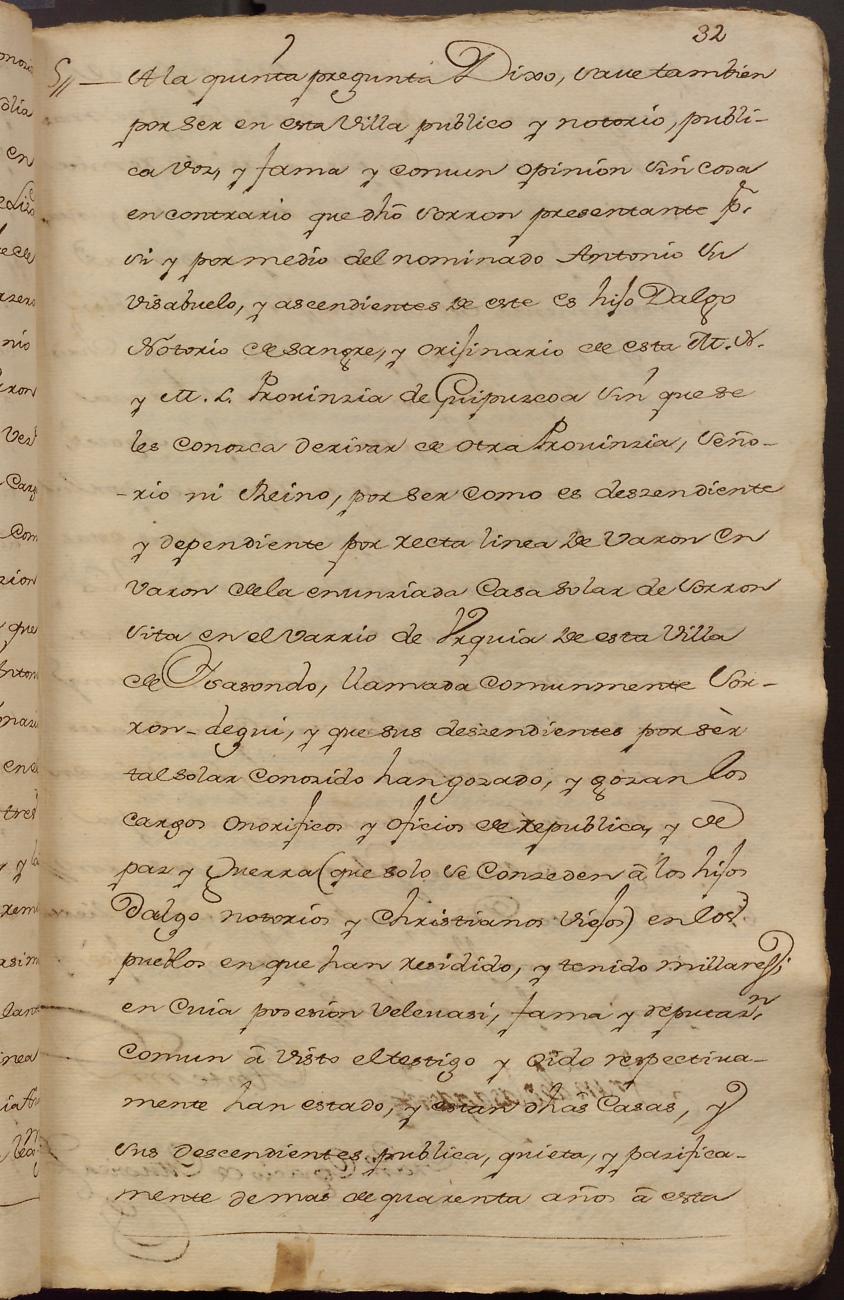 32
5,, — A la quinta pregunta Dixo, save tambien
por ser en esta Villa publico y notorio, publi-
ca voz, y fama y comun opinion sin cosa
en contrario que dho Sorron presentante p.r
si y por medio del nominado Antonio su
visabuelo, y ascendientes de este es hijo Dalgo
Notorio de sangre, y orijinario de esta M. N.
y M. L. Provinzia de Guipuscoa sin que se
les conosca derivar de otra Provinzia, Seño-
-rio ni Reino, por ser como es deszendiente
y dependiente por recta linea de Varon en
varon de la enunziada Casa solar de Sorron
sita en el varrio de Vrquia de esta Villa
de Ysasondo, llamada comunmente Sor-
ron-degui, y que sus deszendientes por sèr
tal solar conozido han gozado, y gozan los
cargos onorificos y oficios de republica, y de
paz y Guerra (que solo se conzeden â los hijos
Dalgo notorios y Christianos viejos) en los
pueblos en que han residido, y tenido millares,
en cuia posesión velcuasi, fama y reputaz.n
comun â visto el testigo y oido respectiva-
mente han estado, y estan dhas Casas, y
sus descendientes publica, quieta, y pazifica-
mente de mas de quarenta años â esta